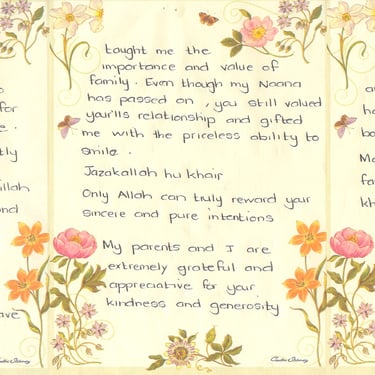 taught me the
importance and value of
family. Even though my Naana
has passed on, you still valued
your'lls relationship and gifted
me with the priceless ability to
smile.
Jazakallah hu khair
Only Allah can truly reward your
sincere and pure intentions
My parents and I are
extremely grateful and
appreciative for your
kindness and generosity